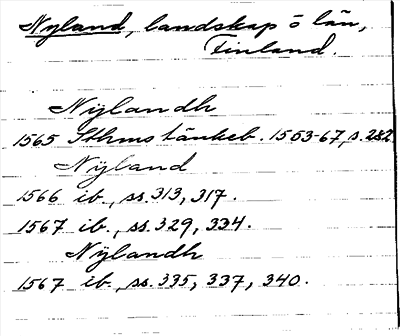 Nyland, landskap o län,
Finland.
Nÿlandh
1565 Sthms tänkeb. 1553-67, s. 282
Nÿland
1566 ib., ss. 313, 317.
1567 ib., ss. 329, 334.
Nÿlandh
1567 ib., ss. 335, 337, 340.